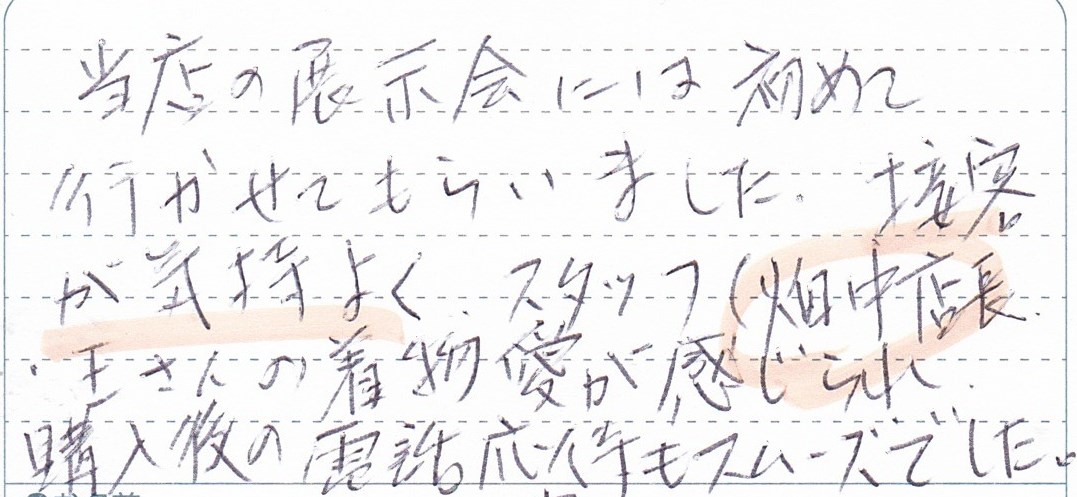 当店の展示会には初めて
行かせてもらいました。接客
が気持よく、スタッフ(畑中店長.
・王さんの着物愛が感じられ、
購入後の電話応対等もスムーズでした。